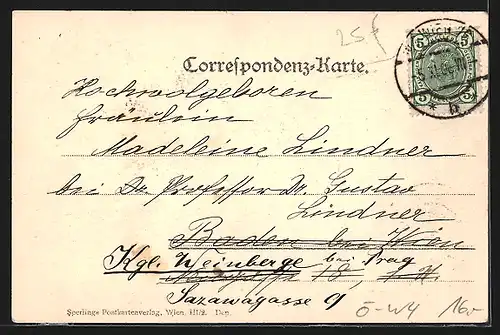 25
Correspondenz-Karte.
5 5
WIEN
5 5
* b
Hochwolgeboren
Fräulein
Madeleine Lindner
bei Dr. Professor Dr. Gustav
Lindner
Baden bei Wien
Kgl. Weinberge bei Prag
18,
Sazawagasse 9
Sperlings Postkartenverlag, Wien, III/2. Dep.
Ö-W4 16,-